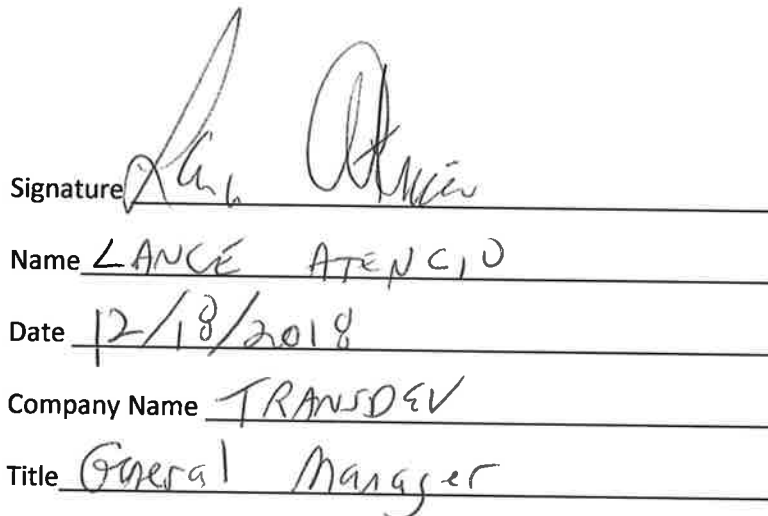 Signature
Name LANCE ATENCIO
Date 12/18/2018
Company Name TRANSDEV
Title General Manager